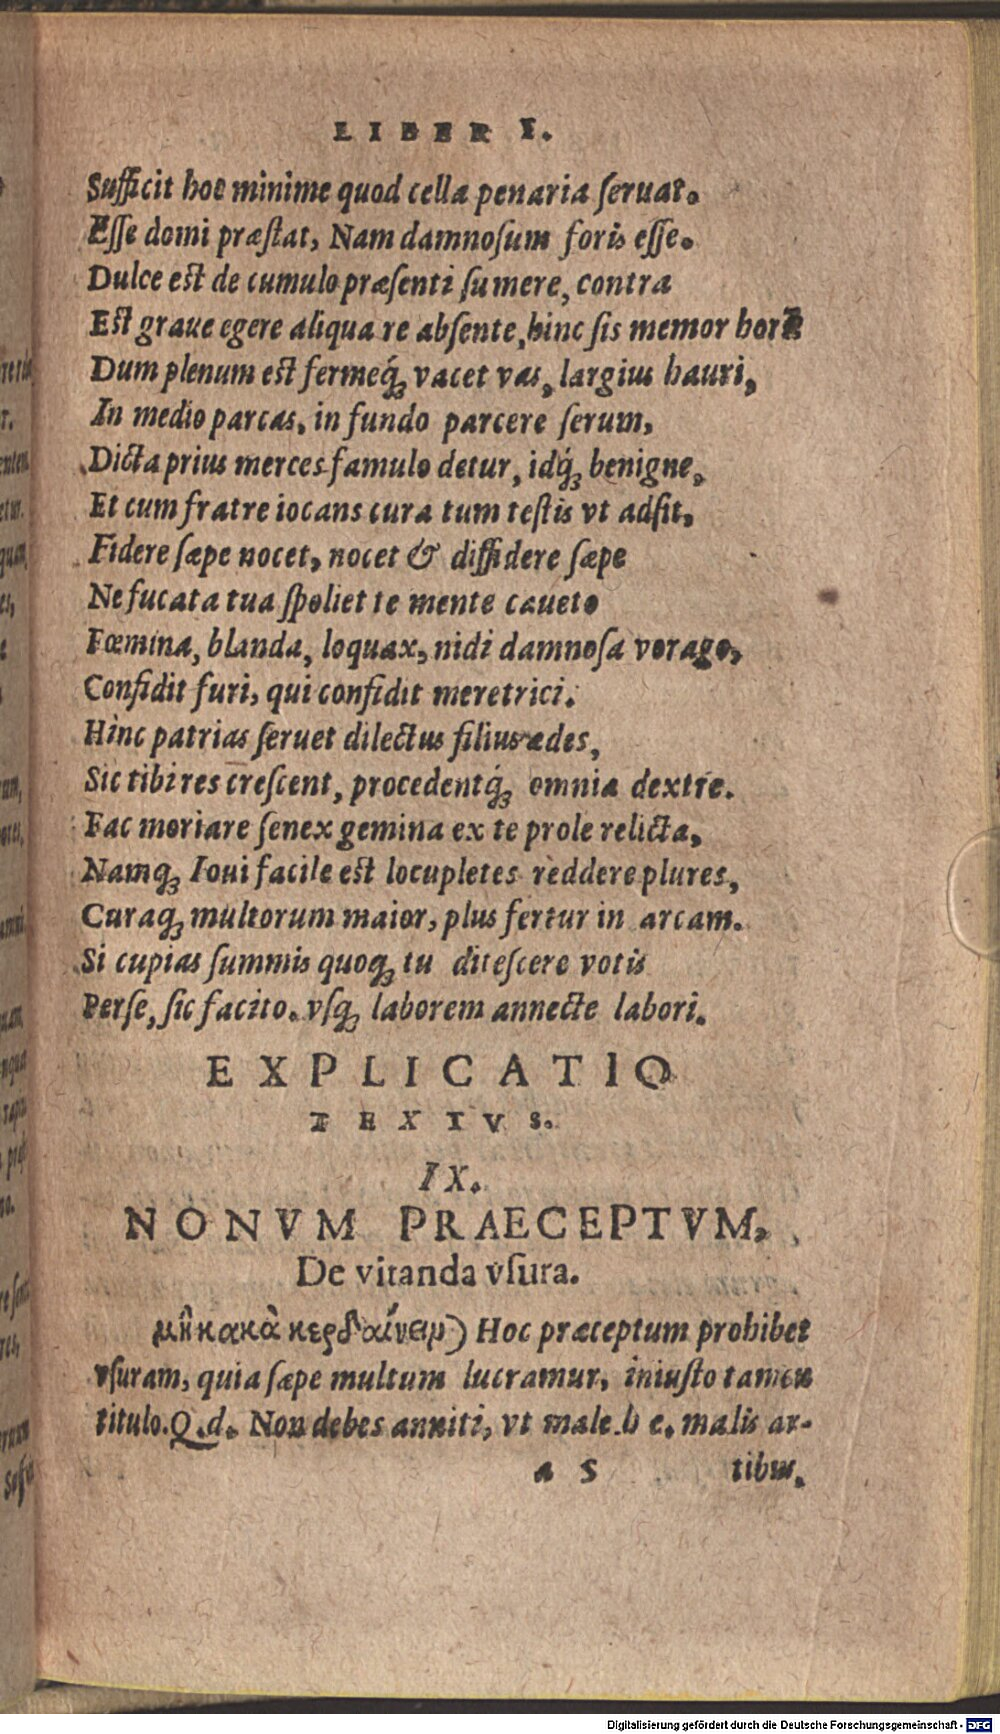 LIBER I.
Sufficit hoc minime quod cella penaria ſeruat.
Eſſe domi præſtat, Nam damnoſum foris eſſe.
Dulce est de cumulo præſenti ſumere, contra
Est graue egere aliqua re abſente, hinc ſis memor horũ
Dum plenum est fermeq́ꝫ vacet vas, largius hauri,
In medio parcas, in fundo parcere ſerum,
Dicta prius merces famulo detur, idq́ꝫ benigne,
Et cum fratre iocans cura tum teſtis vt adſit,
Fidere ſæpe nocet, nocet & diffidere ſæpe
Ne fucata tua ſpoliet te mente caueto
Fœmina, blanda, loquax, nidi damnoſa vorago,
Confidit furi, qui confidit meretrici.
Hinc patrias ſeruet dilectus filius ædes,
Sic tibi res creſcent, procedentq́ꝫ omnia dextre.
Fac moriare ſenex gemina ex te prole relicta,
Namqꝫ Ioui facile est locupletes reddere plures,
Curaqꝫ multorum maior, plus fertur in arcam.
Si cupias ſummis quoqꝫ tu diteſcere votis
Perſe, ſic facito. vſqꝫ laborem annecte labori.
EXPLICATIO
TEXTVS.
IX.
NONVM PRAECEPTVM,
De vitanda vſura.
μὴ κακὰ κερδαίνειν) Hoc præceptum prohibet
vſuram, quia ſæpe multum lucramur, iniuſto tamen
titulo. Q.d. Non debes anniti, vt male. h e. malis ar-
a 5 tibus,
Digitalisierung gefördert durch die Deutsche Forschungsgemeinschaft - DFG